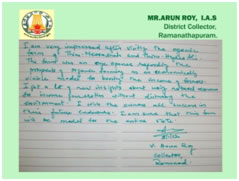 MR.ARUN ROY, I.A.S
District Collector,
Ramanathapuram.
I am very impressed after visiting the organic
farm of Thiru Murugesan and Thiru
The farm was an eye opener especially the
prospects of organic farming as an economically
viable model to the income of farmers
I got a lot of new insights about using natural resource
for income generation without the
environment. I wish the success in
their future endeavors. I am sure that this farm
will be model for the entire state
V. Arun Roy
Collector,
Ramnad